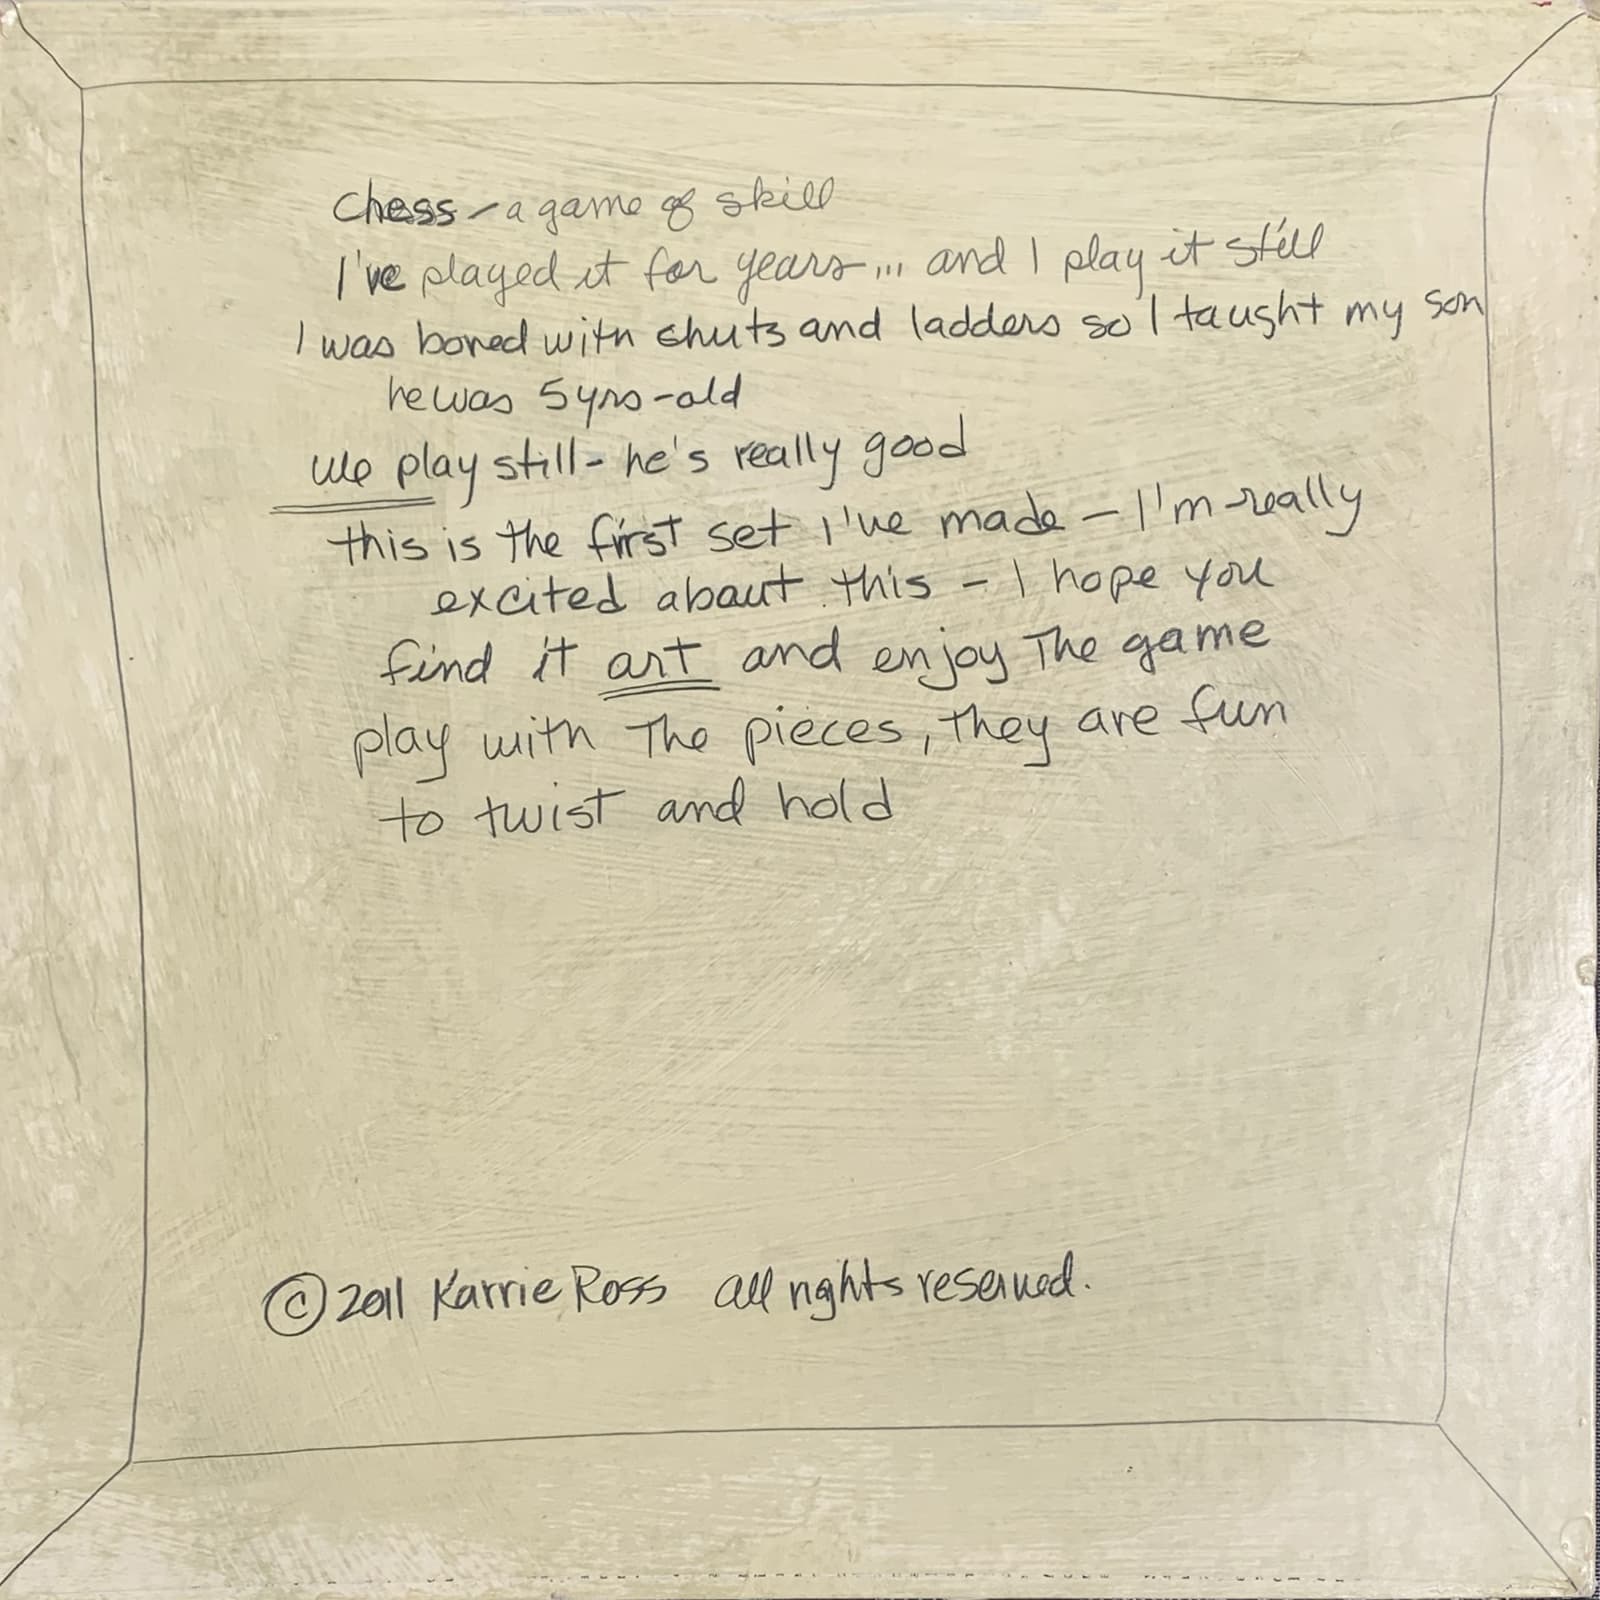 Chess - a game of skill
I've played it for years... and I play it still
I was bored with chuts and ladders so I taught my son
he was 5yrs-old
we play still - he's really good
this is the first set I've made - I'm really
excited about this - I hope you
find it art and enjoy The game
play with The pieces, they are fun
to twist and hold
© 2011 Karrie Ross all rights reserved.